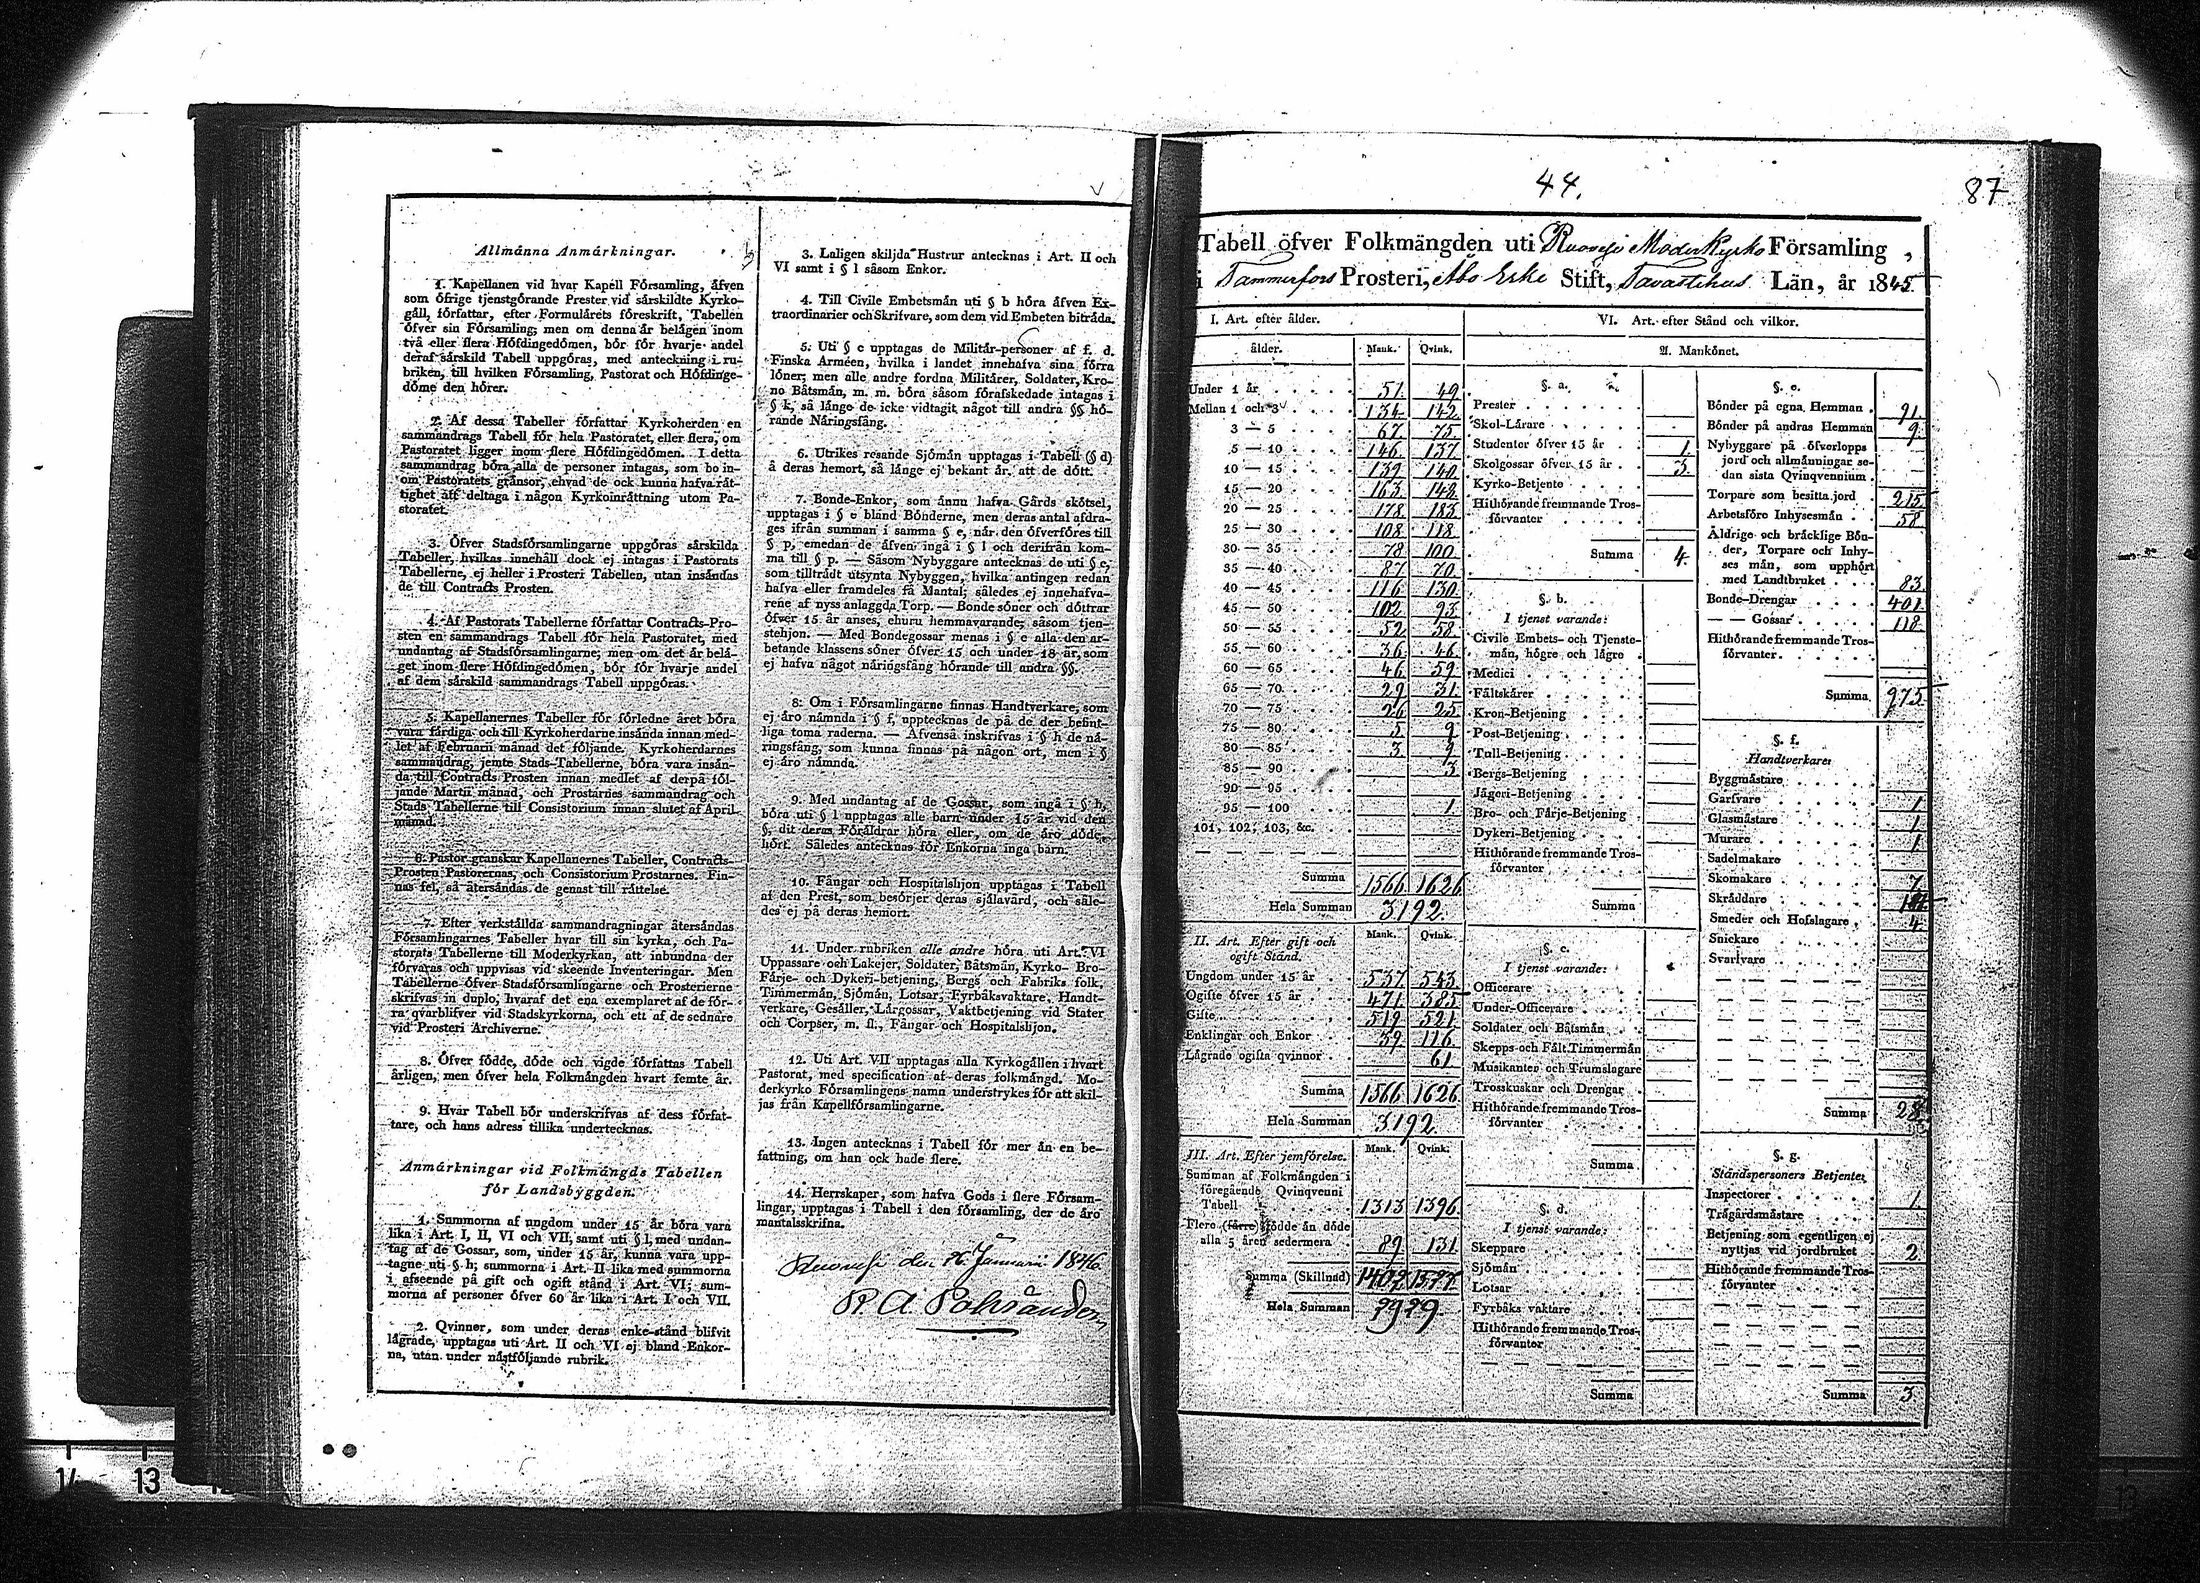 Allmänna Anmärkningar.
1. Kapellanen vid hvar Kapell Församling, äfven
som öfrige tjenstgörande Prester vid särskildte Kyrko-
gäll, författar, efter Formulärets föreskrift, Tabellen
öfver sin Församling; men om denna är belägen inom
två eller flera Höfdingedömen, bör för hvarje andel
deraf särskild Tabell uppgöras, med anteckning i ru-
briken, till hvilken Församling, Pastorat och Höfdinge-
döme den hörer.
2. Af dessa Tabeller författar Kyrkoherden en
sammandrags Tabell för hela Pastoratet, eller flera, om
Pastoratet ligger inom flere Höfdingedömen. I detta
sammandrag böra alla de personer intagas, som bo in-
om Pastoratets gränsor, ehvad de ock kunna hafva rät-
tighet att deltaga i någon Kyrkoinrättning utom Pa-
storatet.
3. Öfver Stadsförsamlingarne uppgöras särskilda
Tabeller, hvilkas innehåll dock ej intagas i Pastorats
Tabellerne, ej heller i Prosteri Tabellen, utan insändas
de till Contracts Prosten.
4. Af Pastorats Tabellerne författar Contracts-Pro-
sten en sammandrags Tabell för hela Pastoratet, med
undantag af Stadsförsamlingarne; men om det är belä-
get inom flere Höfdingedömen, bör för hvarje andel
af dem särskild sammandrags Tabell uppgöras.
5. Kapellanernes Tabeller för förledne året böra
vara färdiga och till Kyrkoherdarne insända innan med-
let af Februarii månad det följande. Kyrkoherdarnes
sammandrag, jemte Stads-Tabellerne, böra vara insän-
da till Contracts Prosten innan medlet af derpå föl-
jande Martii månad, och Prostarnes sammandrag och
Stads Tabellerne till Consistorium innan slutet af April
månad.
6. Pastor granskar Kapellanernes Tabeller, Contracts-
Prosten Pastorernas, och Consistorium Prostarnes. Fin-
nas fel, så återsändas de genast till rättelse.
7. Efter verkställda sammandragningar återsändas
Församlingarnes Tabeller hvar till sin kyrka, och Pa-
storats Tabellerne till Moderkyrkan, att inbundna der
förvaras och uppvisas vid skeende Inventeringar. Men
Tabellerne öfver Stadsförsamlingarne och Prosterierne
skrifvas in duplo, hvaraf det ena exemplaret af de för-
ra qvarblifver vid Stadskyrkorna, och ett af de sednare
vid Prosteri Archiverne.
8. Öfver födde, döde och vigde författas Tabell
årligen, men öfver hela Folkmängden hvart femte år.
9. Hvar Tabell bör underskrifvas af dess förfat-
tare, och hans adress tillika undertecknas.
Anmärkningar vid Folkmängds Tabellen
för Landsbyggden.
1. Summorna af ungdom under 15 år böra vara
lika i Art. I, II, VI och VII, samt uti § l, med undan-
tag af de Gossar, som, under 15 år, kunna vara upp-
tagne uti § h; summorna i Art. II lika med summorna
i afseende på gift och ogift stånd i Art. VI; sum-
morna af personer öfver 60 år lika i Art. I och VII.
2. Qvinnor, som under deras enke-stånd blifvit
lägrade, upptagas uti Art. II och VI ej bland Enkor-
na, utan under nästföljande rubrik.
3. Laligen skiljda Hustrur antecknas i Art. II och
VI samt i § l såsom Enkor.
4. Till Civile Embetsmän uti § b höra äfven Ex-
traordinarier och Skrifvare, som dem vid Embeten biträda.
5. Uti § c upptagas de Militär-personer af f. d.
Finska Arméen, hvilka i landet innehafva sina förra
löner; men alle andre fordna Militärer, Soldater, Kro-
no Båtsmän, m. m. böra såsom förafskedade intagas i
§ k, så länge de icke vidtagit något till andra §§ hö-
rande Näringsfång.
6. Utrikes resande Sjömän upptagas i Tabell (§ d)
å deras hemort, så länge ej bekant är, att de dött.
7. Bonde-Enkor, som ännu hafva Gårds skötsel,
upptagas i § e bland Bönderne, men deras antal afdra-
ges ifrån summan i samma § e, när den öfverföres till
§ p, emedan de äfven ingå i § l och derifrån kom-
ma till § p. — Såsom Nybyggare antecknas de uti § e,
som tillträdt utsynta Nybyggen, hvilka antingen redan
hafva eller framdeles få Mantal; således ej innehafva-
rene af nyss anlaggda Torp. — Bonde söner och döttrar
öfver 15 år anses, ehuru hemmavarande, såsom tjen-
stehjon. — Med Bondegossar menas i § e alla den ar-
betande klassens söner öfver 15 och under 18 år, som
ej hafva något näringsfång hörande till andra §§.
8. Om i Församlingarne finnas Handtverkare, som
ej äro nämnda i § f, upptecknas de på de der befint-
liga toma raderna. — Äfvenså inskrifvas i § h de nä-
ringsfång, som kunna finnas på någon ort, men i §
ej äro nämnda.
9. Med undantag af de Gossar, som ingå i § h,
böra uti § l upptagas alle barn under 15 år vid den
§, dit deras Föräldrar höra eller, om de äro döde,
hört. Således antecknas för Enkorna inga barn.
10. Fångar och Hospitalshjon upptagas i Tabell
af den Prest, som besörjer deras själavård, och såle-
des ej på deras hemort.
11. Under rubriken alle andre höra uti Art. VI
Uppassare och Lakejer, Soldater, Båtsmän, Kyrko- Bro-
Färje- och Dykeri-betjening, Bergs och Fabriks folk,
Timmermän, Sjömän, Lotsar, Fyrbåksvaktare, Handt-
verkare, Gesäller, Lärgossar, Vaktbetjening vid Stater
och Corpser, m. fl., Fångar och Hospitalshjon.
12. Uti Art. VII upptagas alla Kyrkogällen i hvart
Pastorat, med specification af deras folkmängd. Mo-
derkyrko Församlingens namn understrykes för att skil-
jas från Kapellförsamlingarne.
13. Ingen antecknas i Tabell för mer än en be-
fattning, om han ock hade flere.
14. Herrskaper, som hafva Gods i flere Försam-
lingar, upptagas i Tabell i den församling, der de äro
mantalsskrifna.
Ruovesi den 26 Januarii 1846.
44.
87
Tabell öfver Folkmängden uti Ruovesi Moderkyrko Församling,
i Tammerfors Prosteri, Åbo Erke Stift, Tavastehus Län, år 1845
I. Art. efter ålder.
ålder. Mank. Qvink.
Under 1 år 51. 49.
Mellan 1 och 3 134. 142.
3 — 5 67. 75.
5 — 10 146. 137
10 — 15 139 140.
15 — 20 163. 148.
20 — 25 178. 183.
25 — 30 108. 118.
30 — 35 78 100.
35 — 40 87. 70.
40 — 45 116. 130.
45 — 50 102. 93.
50 — 55 52. 58.
55 — 60 36. 46.
60 — 65 46. 59.
65 — 70 29 31.
70 — 75 26 25.
75 — 80 5 9
80 — 85 3 9
85 — 90 3
90 — 95
95 — 100 1.
101, 102, 103, &c.
Summa 1566 1626
Hela Summan 3192.
II. Art. Efter gift och
ogift Stånd. Mank. Qvink.
Ungdom under 15 år 537. 543.
Ogifte öfver 15 år 471. 385
Gifte 519. 521.
Enklingar och Enkor 39. 116
Lägrade ogifta qvinnor 61.
Summa 1566 1626
Hela Summan 3192
III. Art. Efter jemförelse. Mank. Qvink.
Summan af Folkmängden i
föregående Qvinqvenni
Tabell 1313 1396.
Flere (färre) födde än döde
alla 5 åren sedermera 89. 131.
Summa (Skillnad)
Hela Summan
VI. Art. efter Stånd och vilkor.
A. Mankönet.
§. a.
Prester
Skol-Lärare
Studenter öfver 15 år 1.
Skolgossar öfver 15 år 3.
Kyrko-Betjente
Hithörande fremmande Tros-
förvanter
Summa 4.
§. b.
I tjenst varande:
Civile Embets- och Tjenste-
män, högre och lägre
Medici
Fältskärer
Kron-Betjening
Post-Betjening
Tull-Betjening
Bergs-Betjening
Jägeri-Betjening
Bro- och Färje-Betjening
Dykeri-Betjening
Hithörande fremmande Tros-
förvanter
Summa
§. c.
I tjenst varande:
Officerare
Under-Officerare
Soldater och Båtsmän
Skepps- och Fält Timmermän
Musikanter och Trumslagare
Trosskuskar och Drengar
Hithörande fremmande Tros-
förvanter
Summa
§. d.
I tjenst varande:
Skeppare
Sjömän
Lotsar
Fyrbåks vaktare
Hithörande fremmande Tros-
förvanter
Summa
§. e.
Bönder på egna Hemman 91.
Bönder på andras Hemman 9.
Nybyggare på öfverlopps
jord och allmänningar se-
dan sista Qvinqvennium
Torpare som besitta jord 215.
Arbetsföre Inhysesmän 58.
Åldrige och bräcklige Bön-
der, Torpare och Inhy-
ses män, som upphört
med Landtbruket 83.
Bonde-Drengar 401.
— — Gossar 118.
Hithörande fremmande Tros-
förvanter
Summa 975.
§. f.
Handtverkare
Byggmästare
Garfvare 1
Glasmästare 1
Murare 1
Sadelmakare
Skomakare 7.
Skräddare
Smeder och Hofslagare 4.
Snickare
Svarfvare
Summa 28
§. g.
Ståndspersoners Betjente
Inspectorer 1.
Trägårdsmästare
Betjening som egentligen ej
nyttjas vid jordbruket 2.
Hithörande fremmande Tros-
förvanter
Summa 3.
14 13